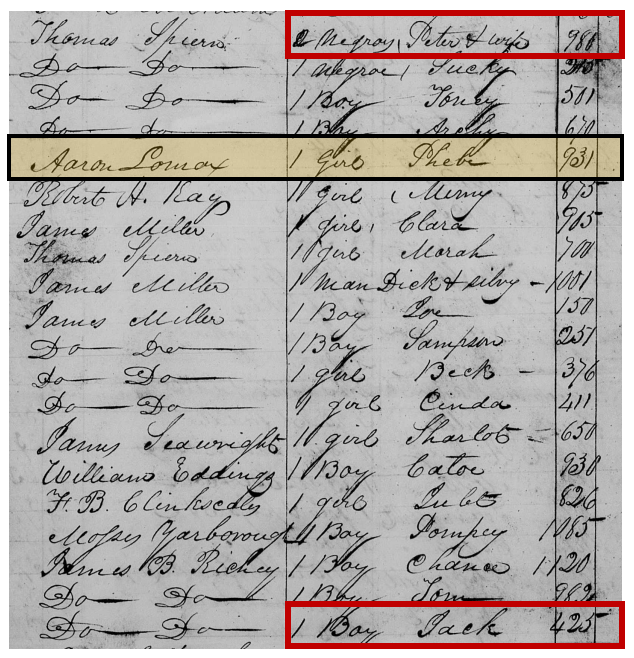 Thomas Spiern 2 Negroes Peter & wife 980
Do Do 1 Negroe Sucky
Do Do 1 Boy Toney 501
Do Do 1 Boy Archy 670
Aaron Lomax 1 Girl Phebe 931
Robert H. Kay 1 girl Merny 875
James Miller 1 girl Clara 905
Thomas Spiern 1 girl Morah 700
James Miller 1 Man Dick & silvy - 1001
James Miller 1 Boy Joe 150
Do Do 1 Boy Sampson 251
Do Do 1 girl Beck - 376
Do Do 1 girl Cinda 411
James Seawright 1 girl Sharlot - 650
William Eddings 1 Boy Catoe 930
F. B. Clinkscales 1 girl 826
Mosses Yarborough 1 Boy Pompey 1085
James B. Richey 1 Boy Chance 1120
Do Do 1 Boy Tom 982
Do Do 1 Boy Jack 425